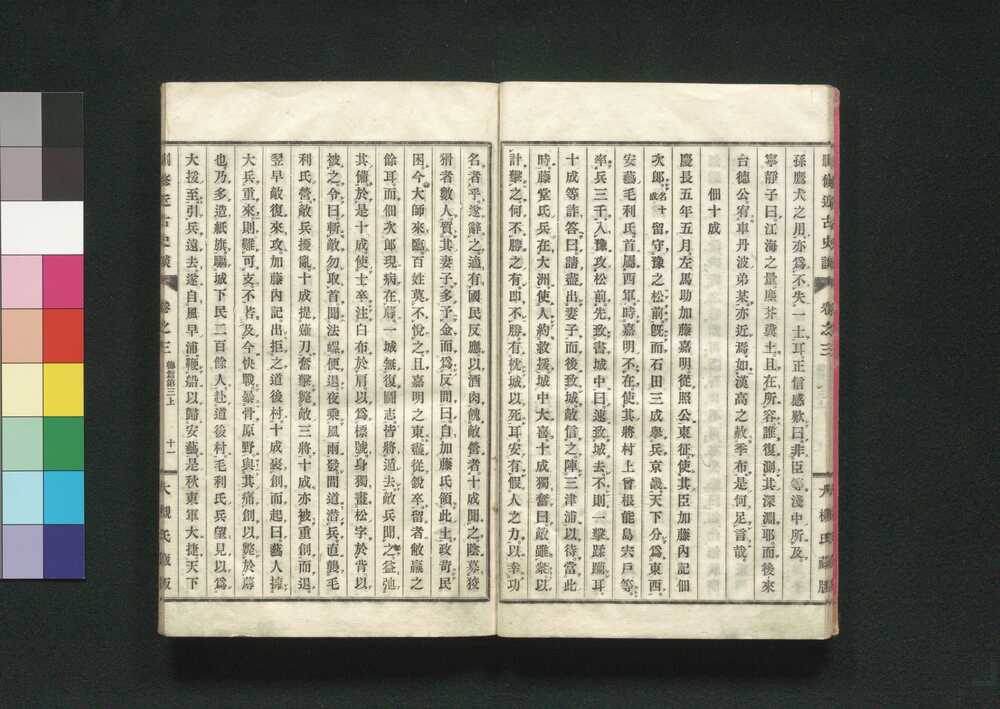 孫鷹犬之用亦爲不失一士耳正信感歎曰非臣等淺中所及
寧靜子曰江海之量塵芥糞土且在所容誰復測其深淵耶而後來
台德公宥車丹波弟某亦近焉如漢高之赦季布是何足言哉
佃十成
慶長五年五月左馬助加藤嘉明從照公東征使其臣加藤内記佃
次郎名十成留守豫之松前旣而石田三成擧兵京畿天下分爲東西
安藝毛利氏首屬西軍時嘉明不在使其將村上曾根能島宍戸等
率兵三千入豫攻松前先致書城中曰速致城去不則一擊蹂躙耳
十成等詐答曰請盡出妻子而後致城敵信之陣三津浦以待當此
時藤堂氏兵在大洲使人約救援城中大喜十成獨奮曰敵雖衆以
計擊之何不勝之有即不勝有枕城以死耳安有假人之力以幸功
名者乎遂辭之適有國民反應以酒肉餽敵營者十成聞之陰募狡
猾者數人質其妻子多予金而爲反間曰自加藤氏領此土政苛民
困今大師來臨百姓莫不悅之且嘉明之東盡從銳卒留者敝羸之
餘耳而佃次郎現病在蓐一城無復鬪志皆將遁去敵兵聞之益弛
其備於是十成使士卒注白布於肩以爲標號身獨畫松字於背以
被之令曰斬敵勿取首聞法螺便退夜乘風雨發間道潛兵直襲毛
利氏營敵兵擾亂十成提薙刀奮擊斃敵三將十成亦被重創而退
翌早敵復來攻加藤内記出拒之道後村十成裹創而起曰藝人擁
大兵重來則難可支不若及今快戰暴骨原野與其痛創以斃於蓐
也乃多造紙旗驅城下民二百餘人赴道後村毛利氏兵望見以爲
大援至引兵遠去遂自風早浦鞭船以歸安藝是秋東軍大捷天下
卷之三
德烈第三上
十一
大槻氏藏版